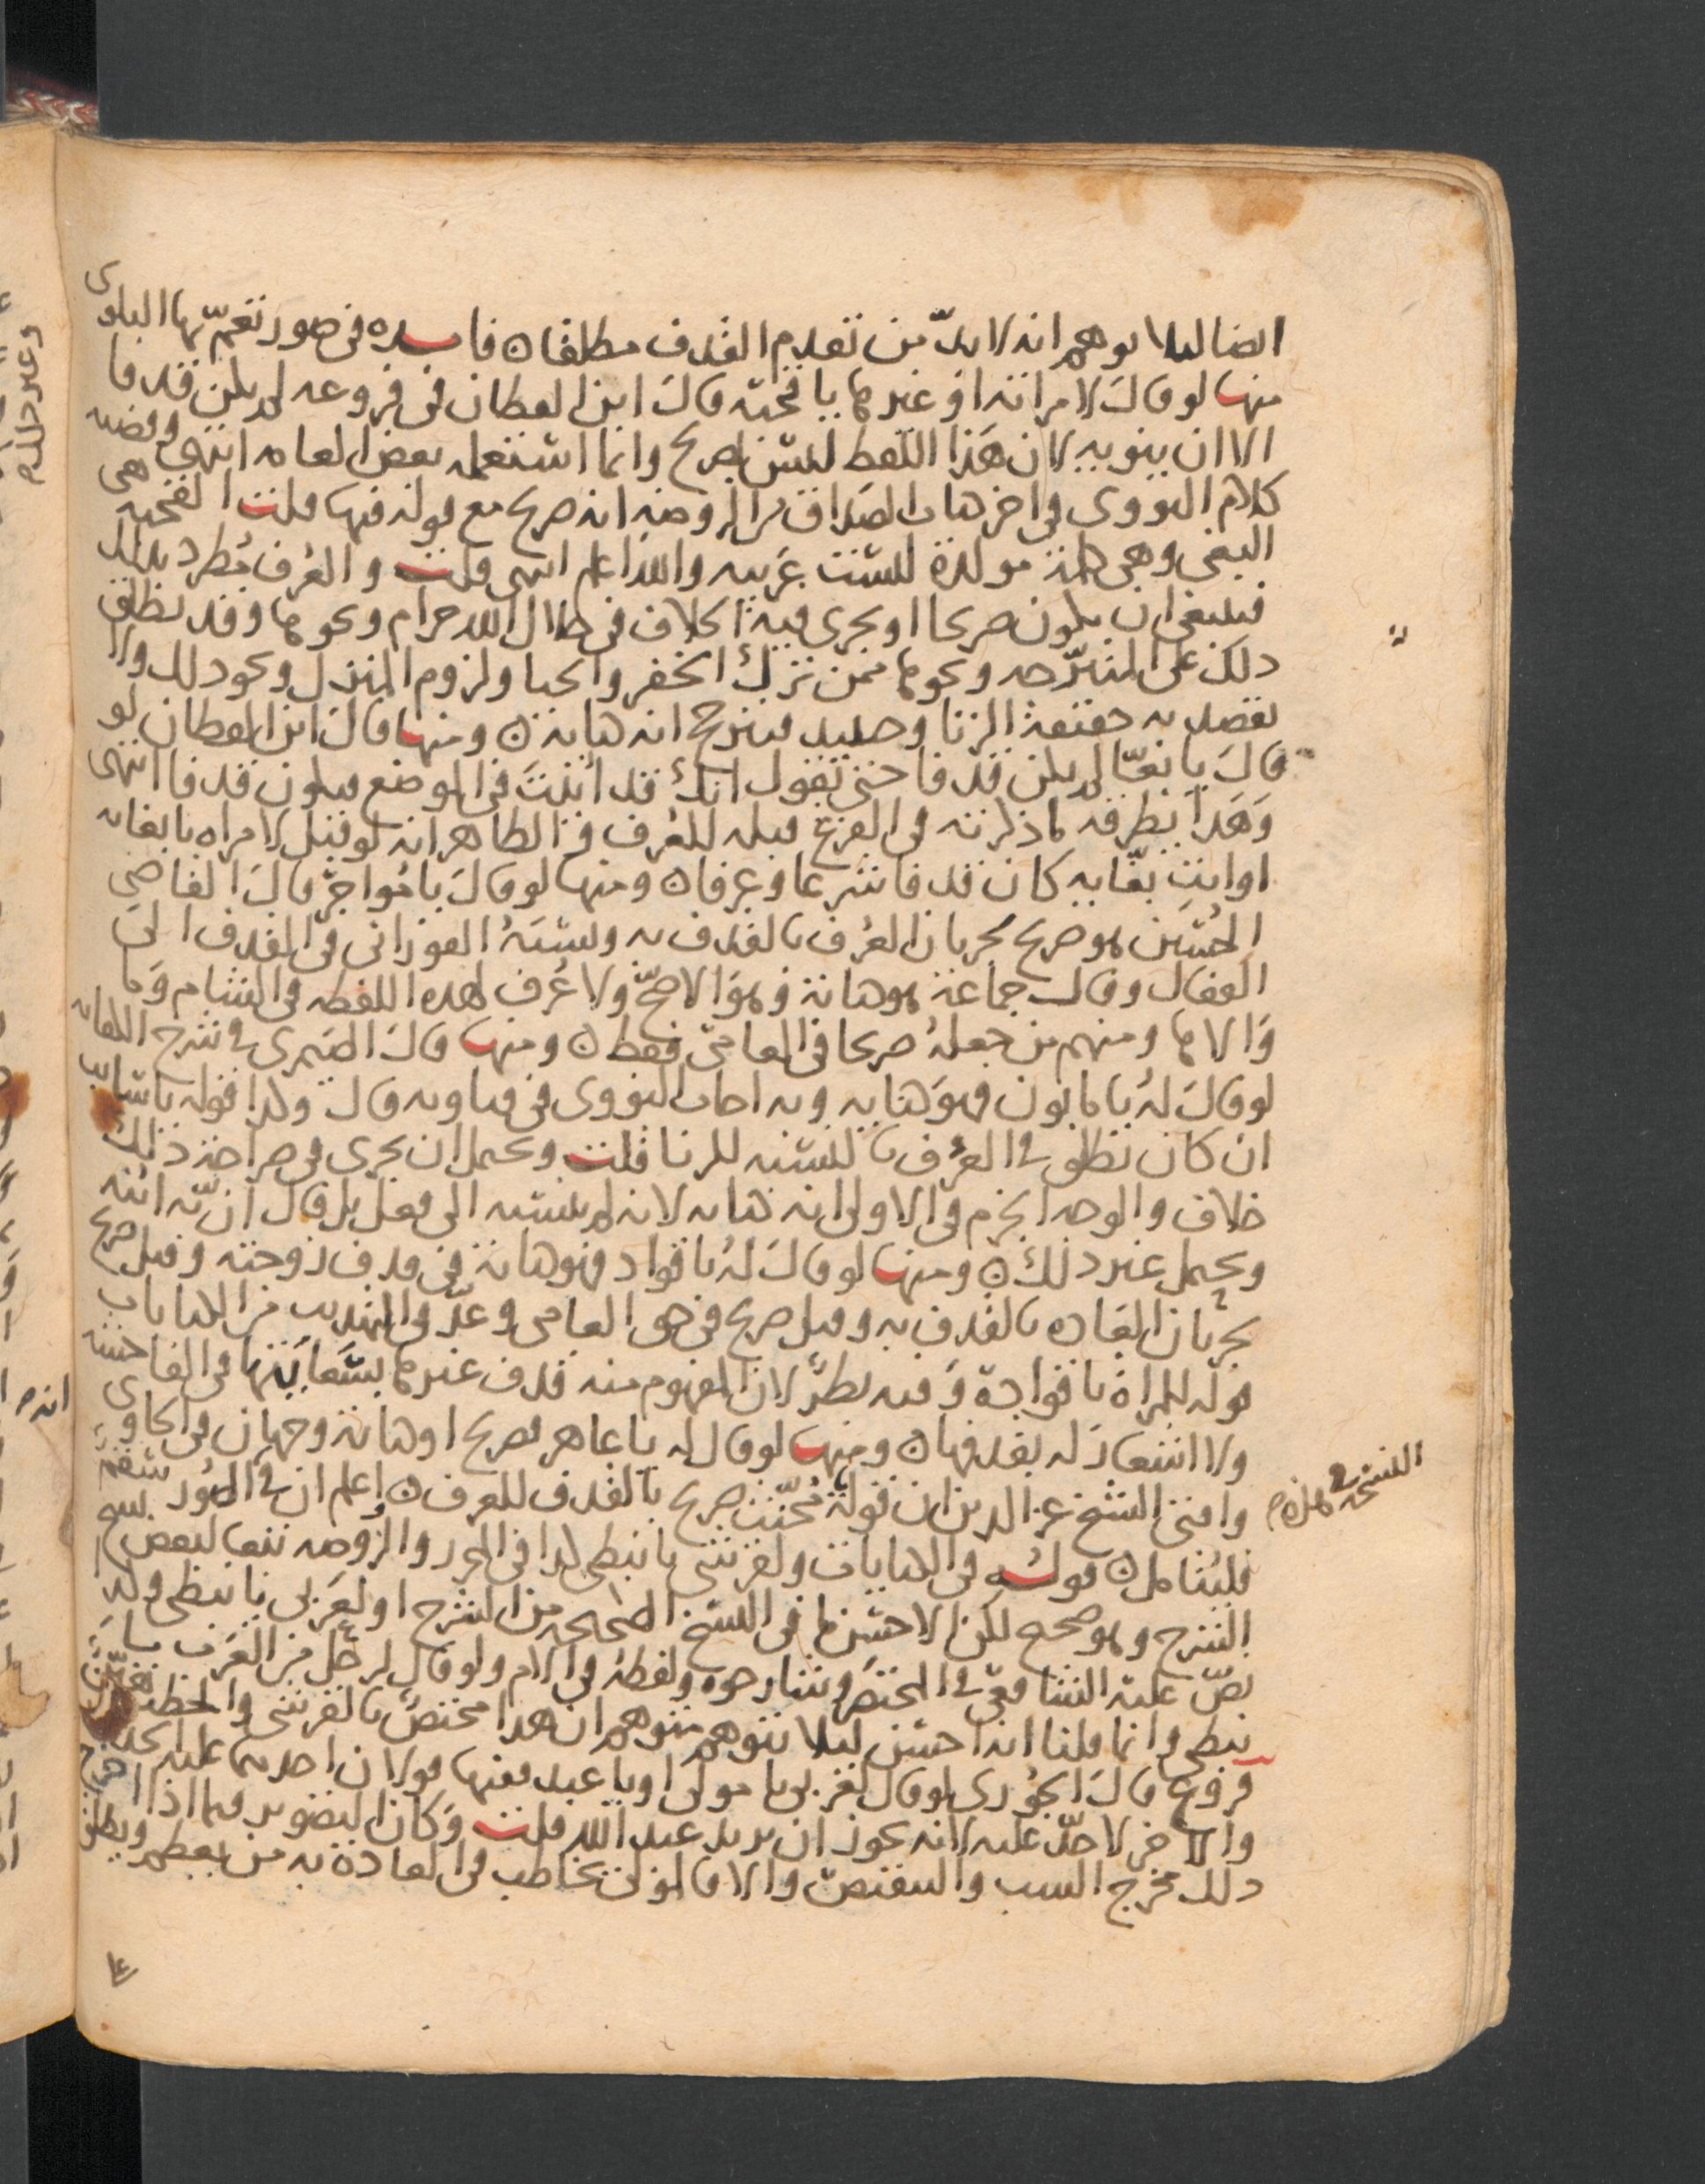 ايضا ليلا يوهم انه لا بدّ من تقدم القذف مطلقا ن فايده في صور تعمّ بها البلوى
منها لو قال لامراته او غيرها يا قحبه قال ابن القطان في فروعه لم يكن قذفا
الا ان ينويه لان هذا اللفظ ليس بصريح وانما استعمله بعض العامه انتهى وقضيه
كلام النووي في اخر هنات الصداق من الروضه انه صريح مع قوله فيها قلت القحبه هي
البغي وهي كلمة مولدة ليست عربيه والله اعلم انتهى قلت والعرف مطرد بذلك
فينبغي ان يكون صريحا او يجري فيه الخلاف في حلال الله حرام ونحوها وقد يطلق
ذلك على المتبرّجه ونحوها ممن ترك الخفر والحيا ولزوم المنزل ونحو ذلك ولا
يقصد به حقيقة الزنا وحينيد فيترجح انه كنايه ن ومنها قال ابن القطان لو
قال يا بغيّ لم يكن قذفا حتى يقول انك قد اتيت في الموضع فيكون قذفا انتهى
وهذا يطرقه ما ذكرته في الفرع قبله للعرف والظاهر انه لو قيل لامراه يا بغايه
او انت بغّايه كان قذفا شرعا وعرفا ن ومنها لو قال يا مواجر قال القاضي
الحسين هو صريح لجريان العرف بالقذف به ونسبه الفوراني في القذف الى
القفال وقال جماعة هو كناية وهو الاصح ولا عرف لهذه اللفظه في الشام وما
والاها ومنهم من جعله صريحا في العامي فقط ن ومنها قال الصيمري في شرح الكفايه
لو قال له يا مابون فهو كنايه وبه اجاب النووي في فتاويه قال وكذا قوله يا شاب
ان كان يطلق في العرف بالنسبه للزنا قلت ويحتمل ان يجري في صراحة ذلك
خلاف والوجه الجزم في الاولى انه كنايه لانه لم ينسبه الى فعل بل قال ان به ابنه
ويحتمل غير ذلك ن ومنها لو قال له يا قواد فهو كناية في قذف زوجته وقيل صريح
بجريان العاده بالقذف به وقيل صريح في حق العامي وعدّ في التهذيب من الكنايات
قوله للمراة يا قوادة وفيه نظر لان المفهوم منه قذف غيرها بسعايتها في الفاحشه
ولا اشعار له بقذفها ن ومنها لو قال له يا عاهر فصريح او كناية وجهان في الحاوي
وافتى الشيخ عز الدين ان قوله يا مخنّث صريح بالقذف للعرف ن واعلم ان في الصور سقم
فليتامل ن قوله في الكنايات ولقرشي يا نبطي كذا في المحرر والروضه تبعا لبعض نسخ
الشرح وهو صحيح لكن الاحسن ما في النسخ الصحيحه من الشرح او لعربي يا نبطي وكذا
نصّ عليه الشافعي في المختصر وشارحوه ولفظه في الام ولو قال لرجل من العرب يا
نبطي وانما قلنا انه احسن ليلا يتوهم متوهم ان هذا مختص بالقرشي
فروع قال الجُوري لو قال لعربي يا مولى او يا عبد ففيها قولان احدهما عليه الحد
والاخر لا حدّ عليه لانه يجوز ان يريد عبد الله قلت وكان التصوير فيما اذا اخرج
ذلك مخرج السب والتنقيص والا فالمولى يخاطب في العادة به من يعظم ويطلق
النسخه في هذه